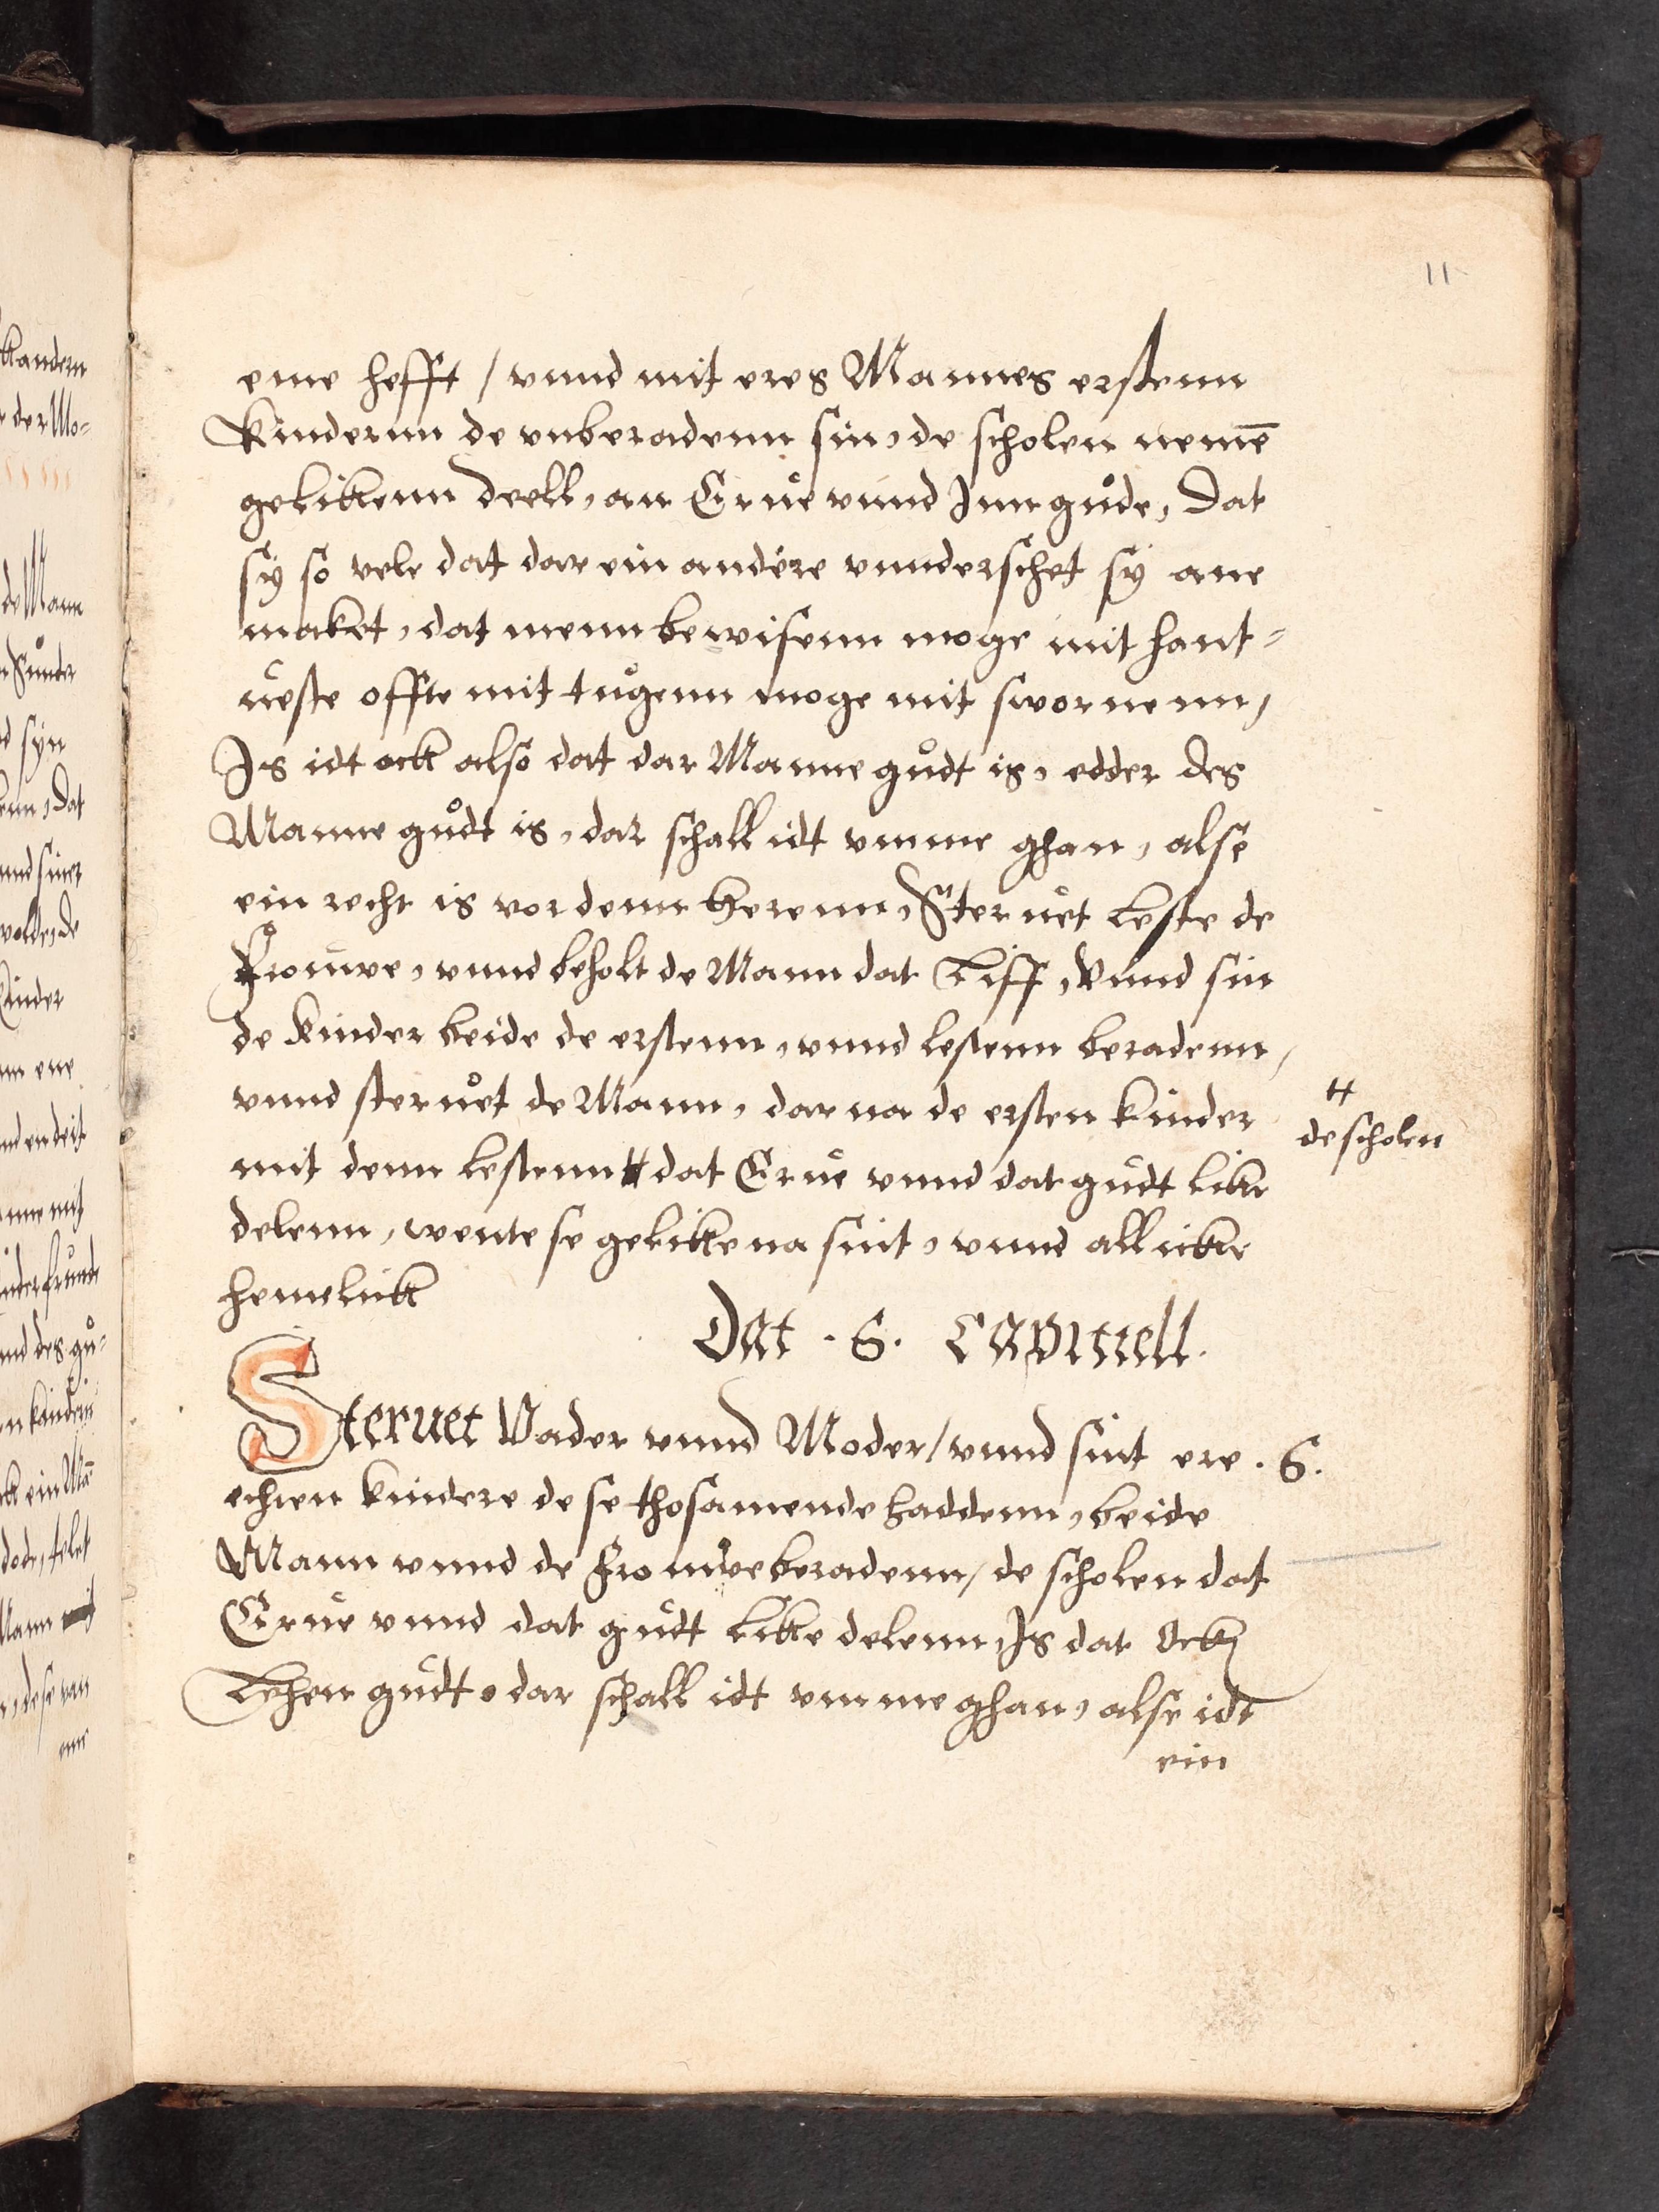 11
eme hefft / vnnd mit eres Mannes erstenn
Kindernn de vnberadenn sin, de scholen nemē
gelikenn deell, an Erue vnnd Jnn gůde, Dat
sÿ so vele dat dar ein andere vnnderschet sÿ ane
maket, dat menn bewisenn moge mit hant=
ueste offte mit tůgenn moge mit swornenn,
Js idt ock also dat dar Manne gůdt is, edder des
Manne gůdt is, dar schall idt vmme ghan, alse
ein recht is vor denn herenn, Steruet leste de
Frouwe, vnnd beholt de Mann dat Liff, Vnnd sin
de Kinder beide de erstenn, vnnd lestenn beradenn,
vnnd steruet de Mann, dar na de ersten Kinder
mit denn lestenn # dat Erue vnnd dat gudt like
# de scholen
delenn, wente se gelike na sint, vnnd all like
hemelick
Dat . 6. Capittell.
Steruet Vader vnnd Moder / vnnd sint ere . 6.
echten Kindere de se thosamende haddenn, beide
Mann vnnd de Frouwe beradenn, de scholen dat
Erue vnnd dat gudt like delenn, Js dat Ock
Lehen gudt, dar schall idt vmme ghan, alse idt
ein